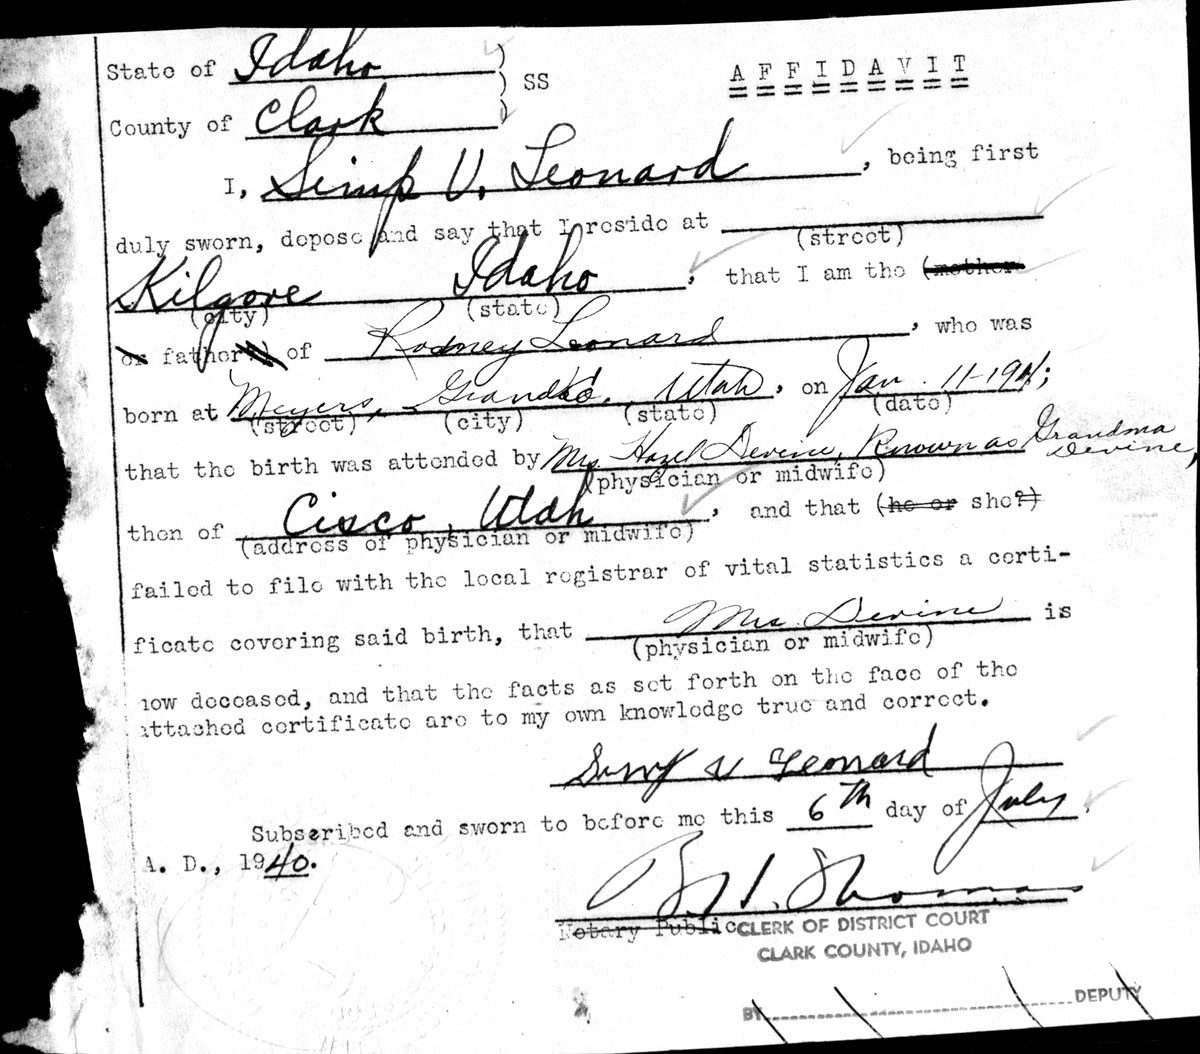 State of Idaho )
) SS AFFIDAVIT
County of Clark )
I, Simp V. Leonard, being first
duly sworn, depose and say that I reside at
(street)
Kilgore Idaho, that I am the (mother
(city) (state)
or father) of Rodney Leonard, who was
born at Meyers, Grand Co. Utah, on Jan. 11-1911;
(street) (city) (state) (date)
that the birth was attended by Mrs. Hazel Devine, Known as Grandma Devine,
(physician or midwife)
then of Cisco, Utah, and that (he or she?)
(address of physician or midwife)
failed to file with the local registrar of vital statistics a certi-
ficate covering said birth, that Mrs. Devine is
(physician or midwife)
now deceased, and that the facts as set forth on the face of the
attached certificate are to my own knowledge true and correct.
Simp V Leonard
Subscribed and sworn to before me this 6th day of July,
A. D., 1940.
Thomas
Notary Public CLERK OF DISTRICT COURT
CLARK COUNTY, IDAHO
BY DEPUTY